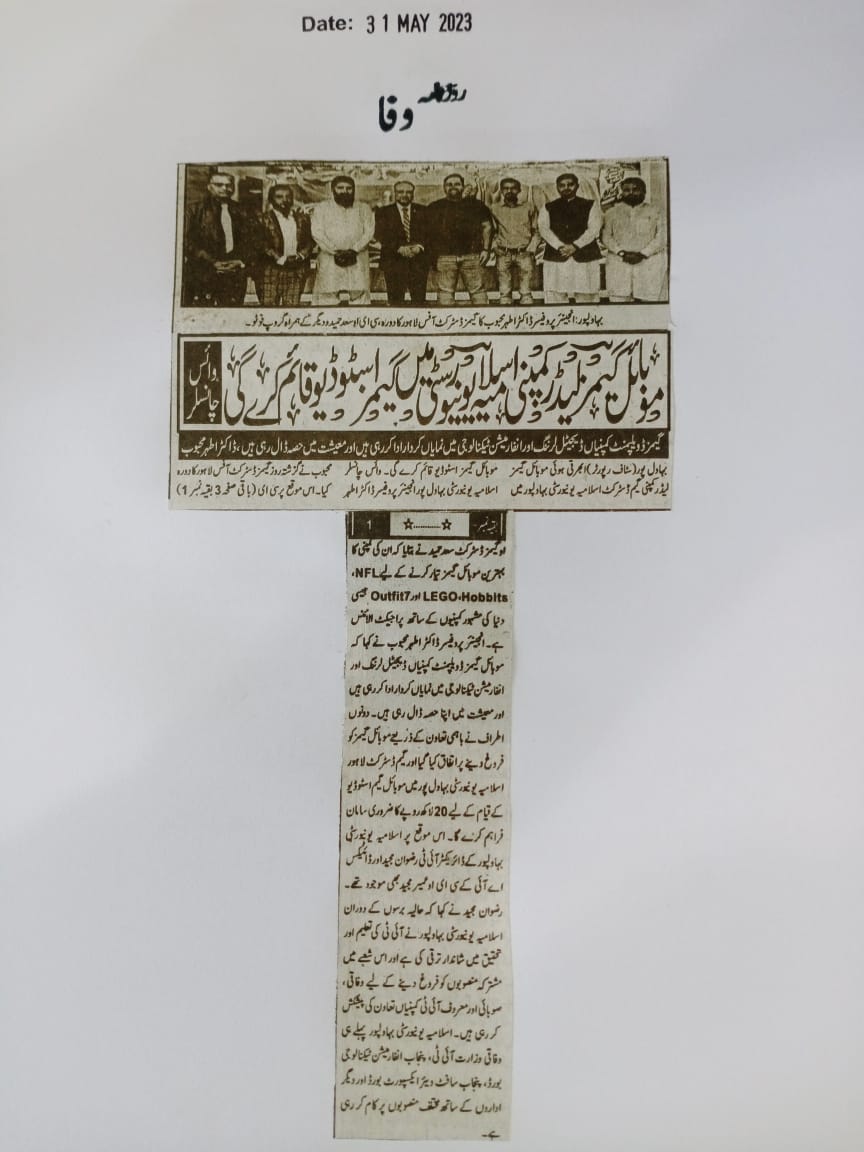 Date: 31 MAY 2023
روزنامہ
وفا
بہاولپور: انجینئر پروفیسر ڈاکٹر اطہر محبوب کا گیمز ڈسٹرکٹ آفس لاہور کا دورہ، سی ای او سعد حمید و دیگر کے ہمراہ گروپ فوٹو۔
موبائل گیمز لیڈر کمپنی اسلامیہ یونیورسٹی میں گیمز اسٹوڈیو قائم کرے گی
وائس
چانسلر
گیمز ڈویلپمنٹ کمپنیاں ڈیجیٹل لرننگ اور انفارمیشن ٹیکنالوجی میں نمایاں کردار ادا کر رہی ہیں اور معیشت میں حصہ ڈال رہی ہیں، ڈاکٹر اطہر محبوب
بہاول پور (سٹاف رپورٹر) ابھرتی ہوئی موبائل گیمز
لیڈر کمپنی گیم ڈسٹرکٹ اسلامیہ یونیورسٹی بہاولپور میں
موبائل گیمز اسٹوڈیو قائم کرے گی۔ وائس چانسلر
اسلامیہ یونیورسٹی بہاول پور انجینئر پروفیسر ڈاکٹر اطہر
محبوب نے گزشتہ روز گیمز ڈسٹرکٹ آفس لاہور کا دورہ
کیا۔ اس موقع پر سی ای (باقی صفحہ 3 بقیہ نمبر 1)
بقیہ نمبر ☆..........☆ 1
او گیمز ڈسٹرکٹ سعد حمید نے بتایا کہ ان کی کمپنی کا
بہترین موبائل گیمز تیار کرنے کے لیے NFL،
LEGO،Hobbits اور Outfit7 جیسی
دنیا کی مشہور کمپنیوں کے ساتھ پراجیکٹ الائنس
ہے۔ انجینئر پروفیسر ڈاکٹر اطہر محبوب نے کہا کہ
موبائل گیمز ڈویلپمنٹ کمپنیاں ڈیجیٹل لرننگ اور
انفارمیشن ٹیکنالوجی میں نمایاں کردار ادا کر رہی ہیں
اور معیشت میں اپنا حصہ ڈال رہی ہیں۔ دونوں
اطراف نے باہمی تعاون کے ذریعے موبائل گیمز کو
فروغ دینے پر اتفاق کیا گیا اور گیم ڈسٹرکٹ لاہور
اسلامیہ یونیورسٹی بہاول پور میں موبائل گیم اسٹوڈیو
کے قیام کے لیے 20 لاکھ روپے کا ضروری سامان
فراہم کرے گا۔ اس موقع پر اسلامیہ یونیورسٹی
بہاولپور کے ڈائریکٹر آئی ٹی رضوان مجید اور
اے آئی کے سی ای او عمیر مجید بھی موجود تھے۔
رضوان مجید نے کہا کہ حالیہ برسوں کے دوران
اسلامیہ یونیورسٹی بہاولپور نے آئی ٹی کی تعلیم اور
تحقیق میں شاندار ترقی کی ہے اور اس شعبے میں
مشترکہ منصوبوں کو فروغ دینے کے لیے وفاقی،
صوبائی اور معروف آئی ٹی کمپنیاں تعاون کی پیشکش
کر رہی ہیں۔ اسلامیہ یونیورسٹی بہاولپور پہلے ہی
وفاقی وزارت آئی ٹی، پنجاب انفارمیشن ٹیکنالوجی
بورڈ، پنجاب سافٹ ویئر ایکسپورٹ بورڈ اور دیگر
اداروں کے ساتھ مختلف منصوبوں پر کام کر رہی
ہے۔